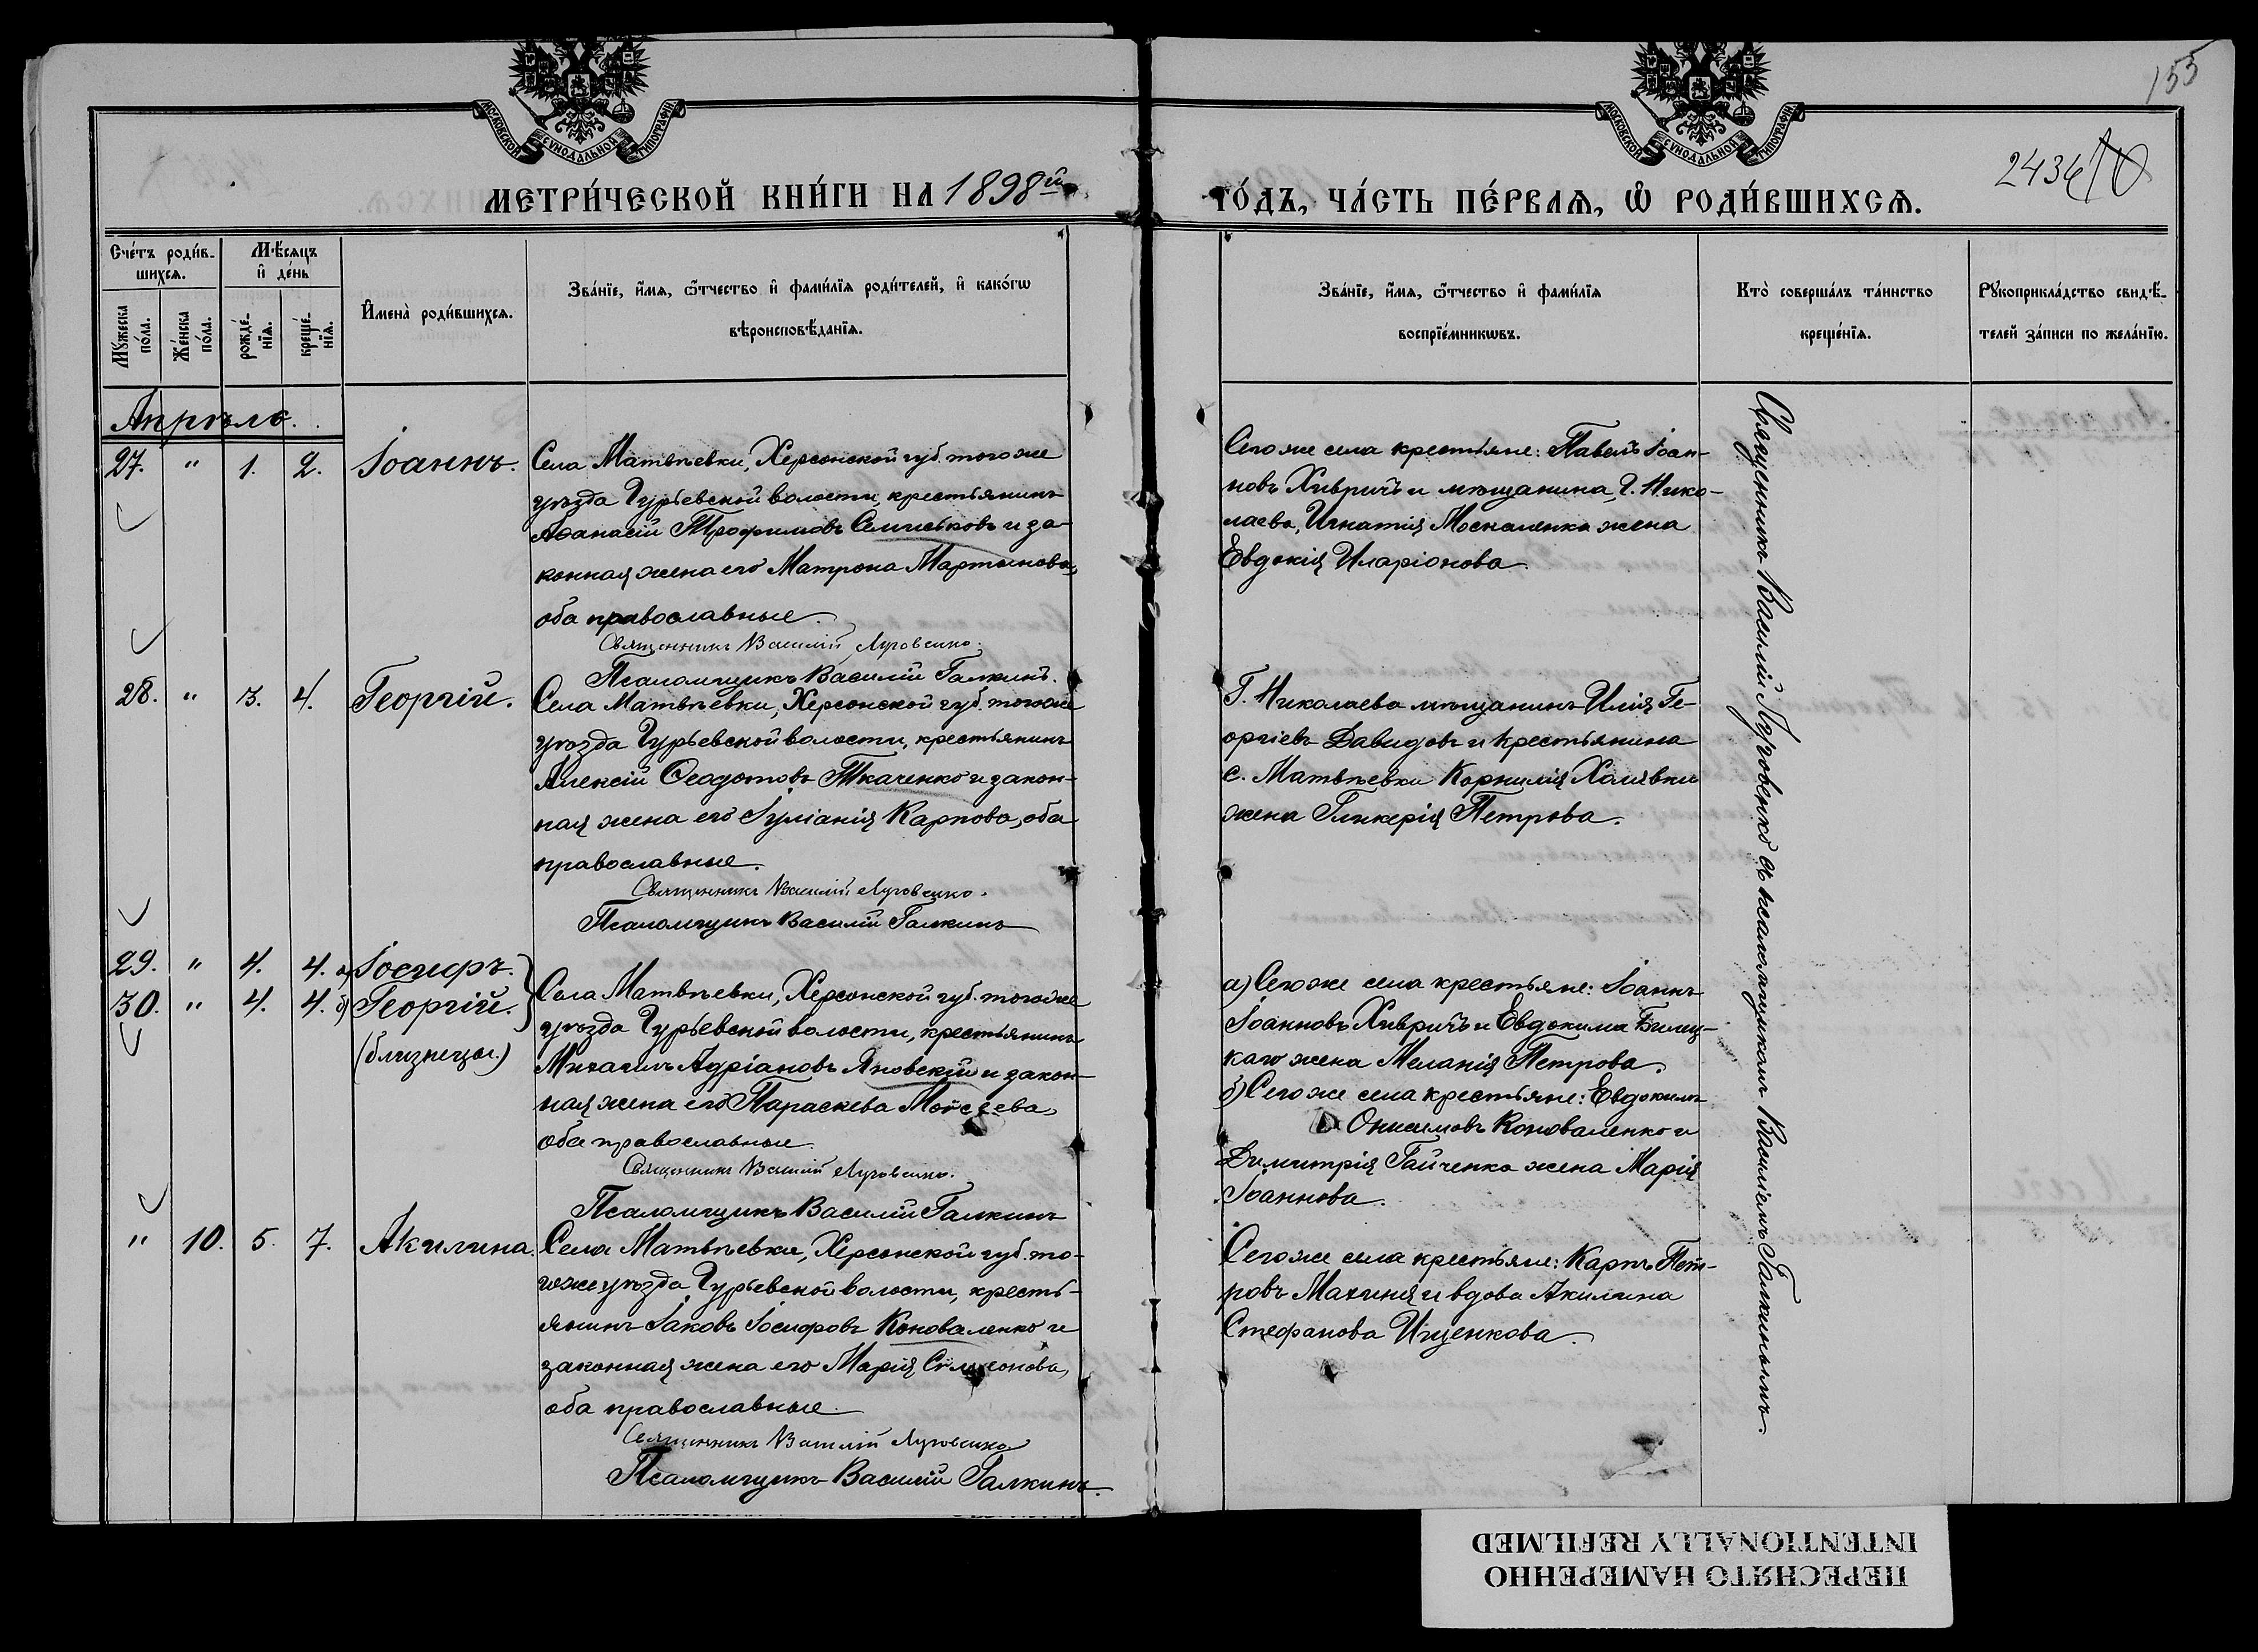 155
2434
МОСКОВСКОЙ СѴНОДАЛЬНОЙ ТИПОГРАФІИ
МОСКОВСКОЙ СѴНОДАЛЬНОЙ ТИПОГРАФІИ
МЕТРИ́ЧЕСКОЙ КНИ́ГИ НА 1898й
ГО́ДЪ, ЧА́СТЬ ПЕ́РВАѦ, Ѡ҆ РОДИ́ВШИХСѦ.
Сче́тъ роди́в-
шихсѧ.
Мѣ́сѧцъ
и҆ де́нь
Мꙋ́жеска
по́ла.
Же́нска
по́ла.
рожде́-
нїѧ.
креще́-
нїѧ.
И҆мена̀ роди́вшихсѧ.
Зва́нїе, и҆́мѧ, ѻ҆́тчество и҆ фами́лїѧ роди́телей, и҆ како́гѡ
вѣроисповѣ́данїѧ.
Зва́нїе, и҆́мѧ, ѻ҆́тчество и҆ фами́лїѧ
воспрїе́мникѡвъ.
Кто̀ соверша́лъ та́инство
креще́нїѧ.
Рꙋкоприкла́дство свидѣ́-
телей за́писи по жела́нїю.
Апрѣль.
27. " 1. 2. Іоаннъ.
Села Матвѣевки, Херсонской губ. того же
уѣзда Гурьевской волости, крестьянинъ
Аѳанасій Трофимовъ Семисьновъ и за-
конная жена его Матрона Мартынова,
оба православные.
Священникъ Василій Луговенко.
Псаломщикъ Василій Галкинъ.
Сего же села крестьяне: Павелъ Іоан-
новъ Хивричъ и мѣщанина, г. Нико-
лаева, Игнатія Москаленка жена
Евдокія Иларіонова.
28. " 3. 4. Георгій.
Села Матвѣевки, Херсонской губ. того же
уѣзда Гурьевской волости, крестьянинъ
Алексій Ѳеодотовъ Ткаченко и закон-
ная жена его Іуліанія Карпова, оба
православные.
Священникъ Василій Луговенко.
Псаломщикъ Василій Галкинъ
Г. Николаева мѣщанинъ Илія Ге-
оргіевъ Давидовъ и крестьянина
с. Матвѣевки Корнилія Халявки
жена Гликерія Петрова.
29. " 4. 4. а) Іосифъ.
30. " 4. 4. б) Георгій.
(близнецы.)
Села Матвѣевки, Херсонской губ. того же
уѣзда Гурьевской волости, крестьянинъ
Михаилъ Адріановъ Яновскій и закон-
ная жена его Параскева Моѵсеева,
оба православные.
Священникъ Василій Луговенко.
Псаломщикъ Василій Галкинъ
а) Сего же села крестьяне: Іоаннъ
Іоанновъ Хивричъ и Евдокима Билец-
каго жена Меланія Петрова.
б) Сего же села крестьяне: Евдокимъ
Онисимовъ Коноваленко и
Димитрія Гайченка жена Марія
Іоаннова.
" 10. 5. 7. Акилина.
Села Матвѣевки, Херсонской губ. то-
го же уѣзда Гурьевской волости, кресть-
янинъ Іаковъ Іосифовъ Коноваленко и
законная жена его Марія Сѵмеонова,
оба православные.
Священникъ Василій Луговенко
Псаломщикъ Василій Галкинъ.
Сего же села крестьяне: Карпъ Пет-
ровъ Махиня и вдова Акилина
Стефанова Ищенкова.
Священникъ Василій Луговенко съ псаломщикомъ Василіемъ Галкинымъ.
ПЕРЕСНЯТО НАМЕРЕННО
INTENTIONALLY REFILMED